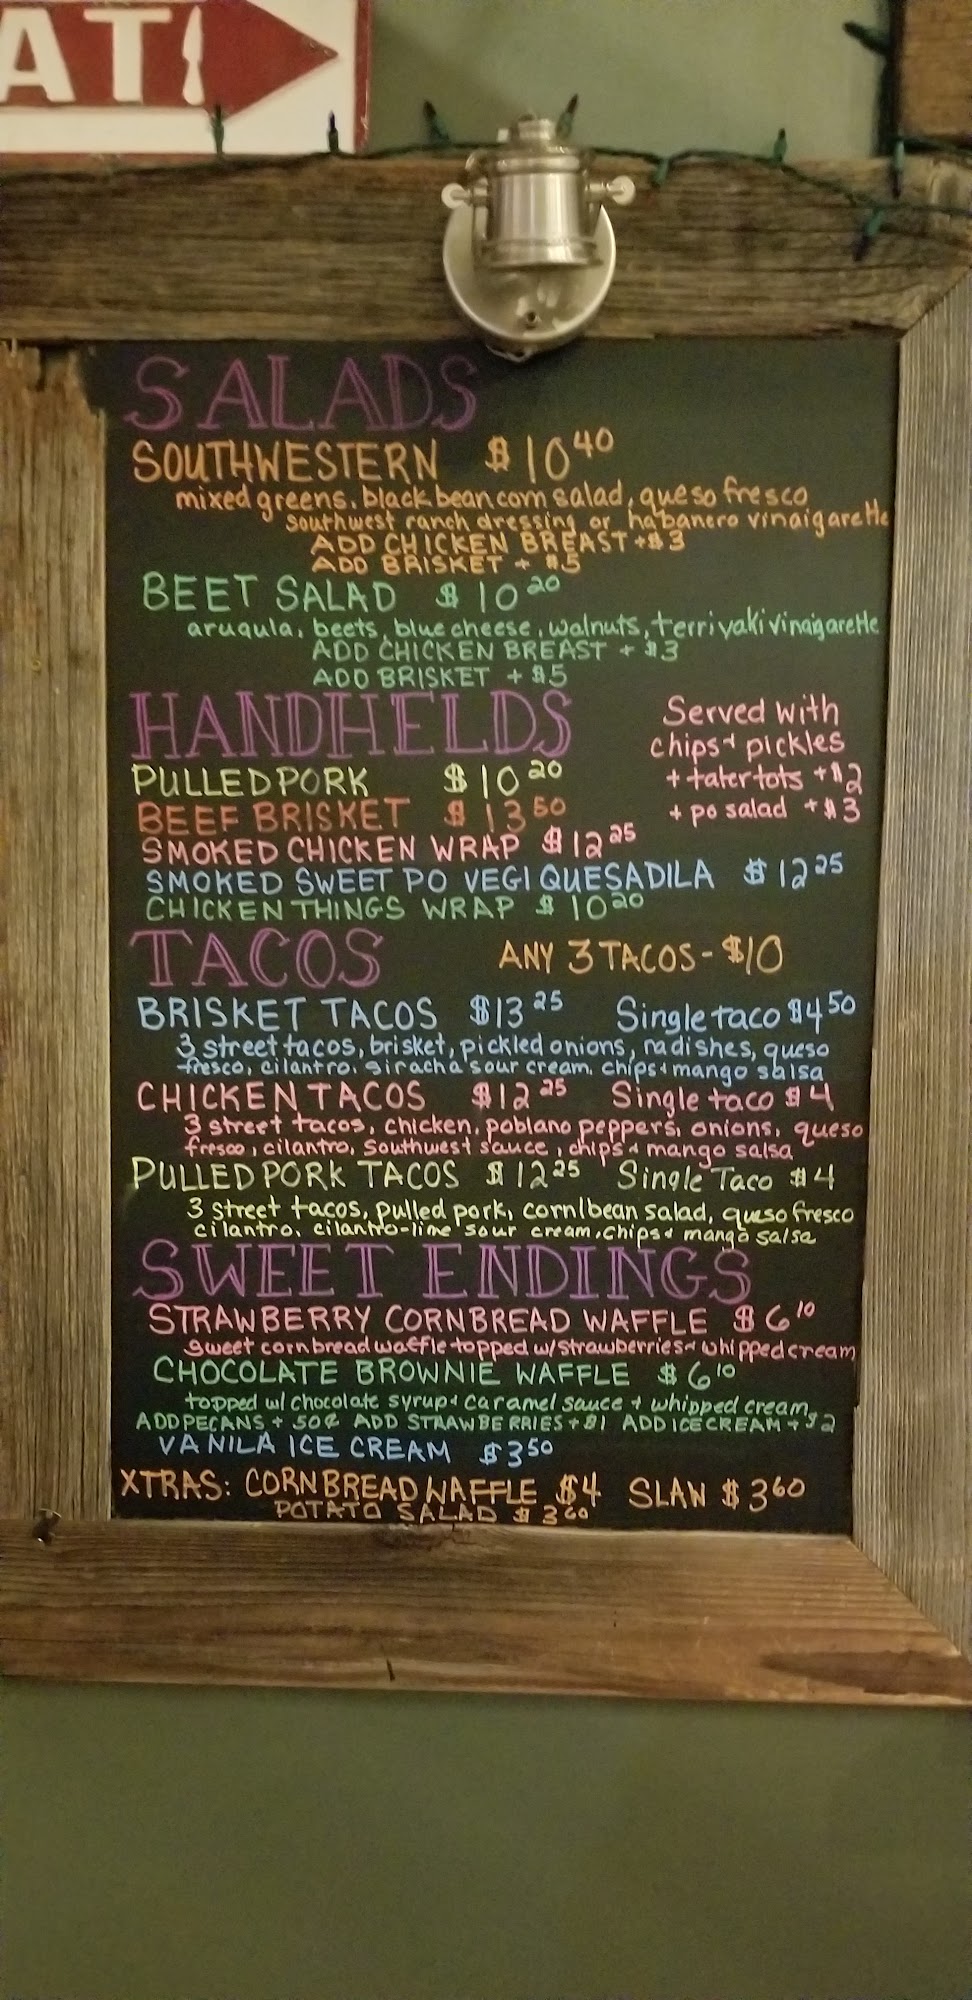 AT
SALADS
SOUTHWESTERN $10 40
mixed greens, black bean corn salad, queso fresco
southwest ranch dressing or habanero vinaigarette
ADD CHICKEN BREAST +$3
ADD BRISKET + $5
BEET SALAD $10 20
arugula, beets, blue cheese, walnuts, terriyaki vinaigarette
ADD CHICKEN BREAST + $3
ADD BRISKET + $5
HANDHELDS
Served with
chips + pickles
+ tater tots +$2
+ po salad +$3
PULLED PORK $10 20
BEEF BRISKET $13 50
SMOKED CHICKEN WRAP $12 25
SMOKED SWEET PO VEGI QUESADILA $12 25
CHICKEN THINGS WRAP $10 20
TACOS ANY 3 TACOS - $10
BRISKET TACOS $13 25 Single taco $4 50
3 street tacos, brisket, pickled onions, radishes, queso
fresco, cilantro, siracha sour cream, chips + mango salsa
CHICKEN TACOS $12 25 Single taco $4
3 street tacos, chicken, poblano peppers, onions, queso
fresco, cilantro, Southwest sauce, chips + mango salsa
PULLED PORK TACOS $12 25 Single Taco $4
3 street tacos, pulled pork, corn/bean salad, queso fresco
cilantro, cilantro-lime sour cream, chips + mango salsa
SWEET ENDINGS
STRAWBERRY CORNBREAD WAFFLE $6 10
sweet cornbread waffle topped w/ strawberries + whipped cream
CHOCOLATE BROWNIE WAFFLE $6 10
topped w/ chocolate syrup + caramel sauce + whipped cream
ADD PECANS + 50¢ ADD STRAWBERRIES + $1 ADD ICE CREAM + $2
VANILA ICE CREAM $3 50
XTRAS: CORNBREAD WAFFLE $4 SLAW $3 60
POTATO SALAD $3 60